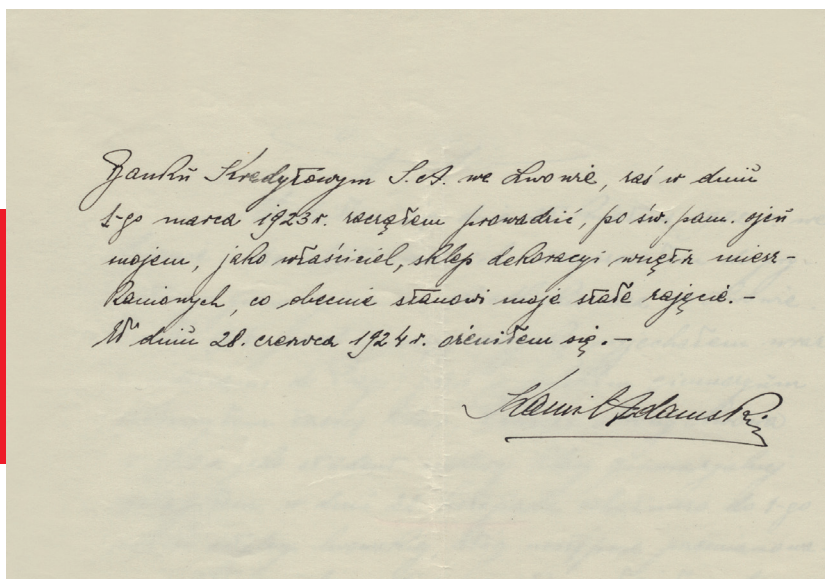 Banku Kredytowym S.A. we Lwowie, zaś w dniu
1-go marca 1923 r. zacząłem prowadzić, po św. pam. ojcu
mojem, jako właściciel, sklep dekoracyi wnętrz miesz-
kaniowych, co obecnie stanowi moje stałe zajęcie.-
W dniu 28. czerwca 1924 r. ożeniłem się.-
Kamil Adamski